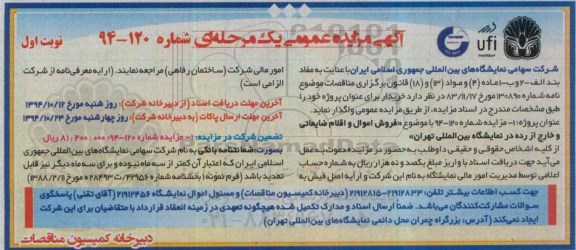 آگهی مزایده عمومی یک مرحله‌ای شماره ۱۲۰-۹۴
نوبت اول
ufi
شرکت سهامی نمایشگاه‌های بین المللی جمهوری اسلامی ایران با عنایت به مفاد
بند الف-۲ و ب-ماده (۴) و مواد (۱۳) و (۱۸) قانون برگزاری مناقصات موضوع
نامه شماره ۱۳۰۸۹۰ مورخ ۸۳/۱۱/۱۷ در نظر دارد خریدار برای عنوان پروژه خود را
طبق مشخصات مندرج در اسناد مزایده، از طریق مزایده عمومی واگذار نماید.
عنوان پروژه: ۱-مزایده شماره ۱۲۰-۹۴ با موضوع: «فروش اموال و اقلام ضایعاتی
و خارج از رده در نمایشگاه بین المللی تهران»
از کلیه اشخاص حقوقی و حقیقی ذیصلاح و داوطلب به حضور در مزایده دعوت بعمل
می‌آید جهت دریافت اسناد با واریز مبلغ یکصد و نه هزار ریال به شماره حساب
اعلامی توسط مدیریت امور مالی نمایشگاه به نام این شرکت و ارایه اصل فیش به
امور مالی شرکت (ساختمان رفاهی) مراجعه نمایند. (ارایه معرفی‌نامه از شرکت
الزامی است)
آخرین مهلت دریافت اسناد (از دبیرخانه شرکت): روز شنبه مورخ ۱۳۹۴/۱۰/۱۲
آخرین مهلت ارسال پاکات (به دبیرخانه شرکت): روز چهارشنبه مورخ ۱۳۹۴/۱۰/۲۳
تضمین شرکت در مزایده: ۱-مزایده شماره ۱۲۰-۹۴: ۸۱,۲۰۰,۰۰۰ ریال
بصورت: ضمانتنامه بانکی به نام شرکت سهامی نمایشگاه‌های بین المللی جمهوری
اسلامی ایران که اعتبار آن کمتر از سه ماه نبوده و برای سه ماه دیگر نیز قابل
تمدید باشد (فرم نمونه: بخشنامه شماره ۴۳۹۵۶/ت۲۸۴۹۳ه مورخ ۱۳۸۸/۲/۸)
جهت کسب اطلاعات بیشتر تلفن: ۲۱۹۱۲۸۳۳-۲۱۹۱۲۸۱۵ (دبیرخانه کمیسیون مناقصات) و مسئول اموال نمایشگاه ۲۱۹۱۲۴۵۶ (آقای تقی) پاسخگوی
سوالات مشارکت‌کنندگان می‌باشد. ضمناً ارسال اسناد و مدارک تکمیل شده هیچگونه تعهدی در زمینه انعقاد قرارداد با متقاضیان برای این شرکت
ایجاد نمی‌کند (آدرس: بزرگراه چمران محل دائمی نمایشگاه‌های بین المللی تهران)
دبیرخانه کمیسیون مناقصات